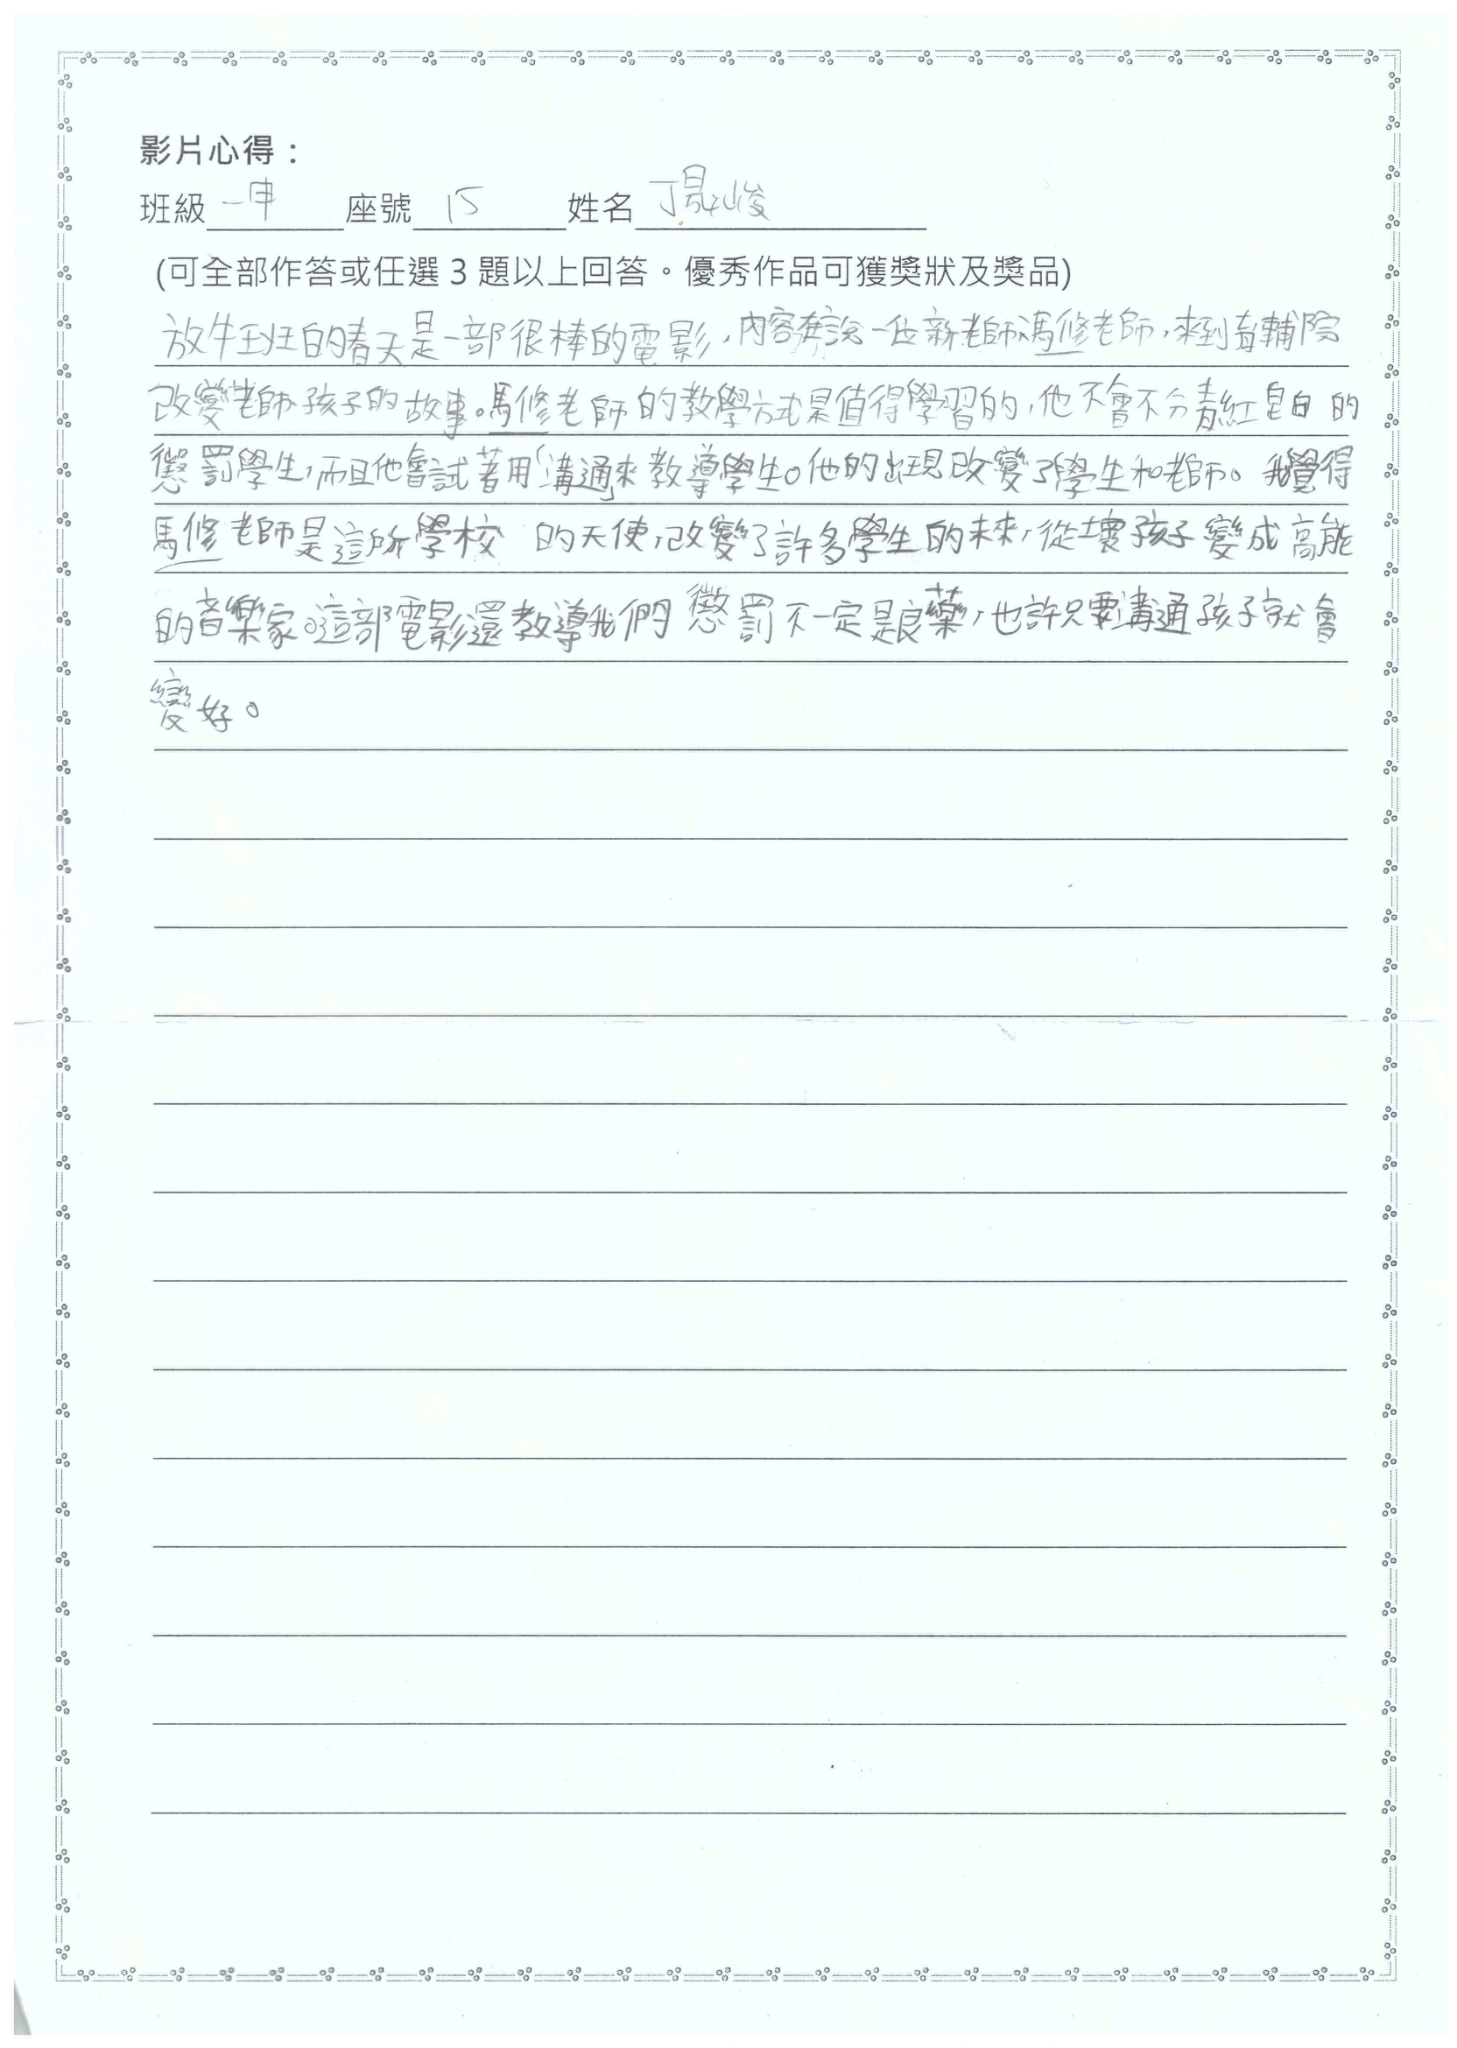 影片心得：
班級 一申 座號 15 姓名 丁 峻
(可全部作答或任選 3 題以上回答。優秀作品可獲獎狀及獎品)
放牛班的春天是一部很棒的電影，內容在說一位新老師馮修老師，來到育輔院
改變老師、孩子的故事。馬修老師的教學方式是值得學習的，他不會不分青紅皂白 的
懲罰學生，而且他會試著用「溝通」來教導學生。他的出現改變了學生和老師。我覺得
馬修老師是這所學校 的天使，改變了許多學生的未來，從壞孩子變成高能
的音樂家。這部電影還教導我們 懲罰不一定是良藥，也許只要溝通孩子就會
變好。